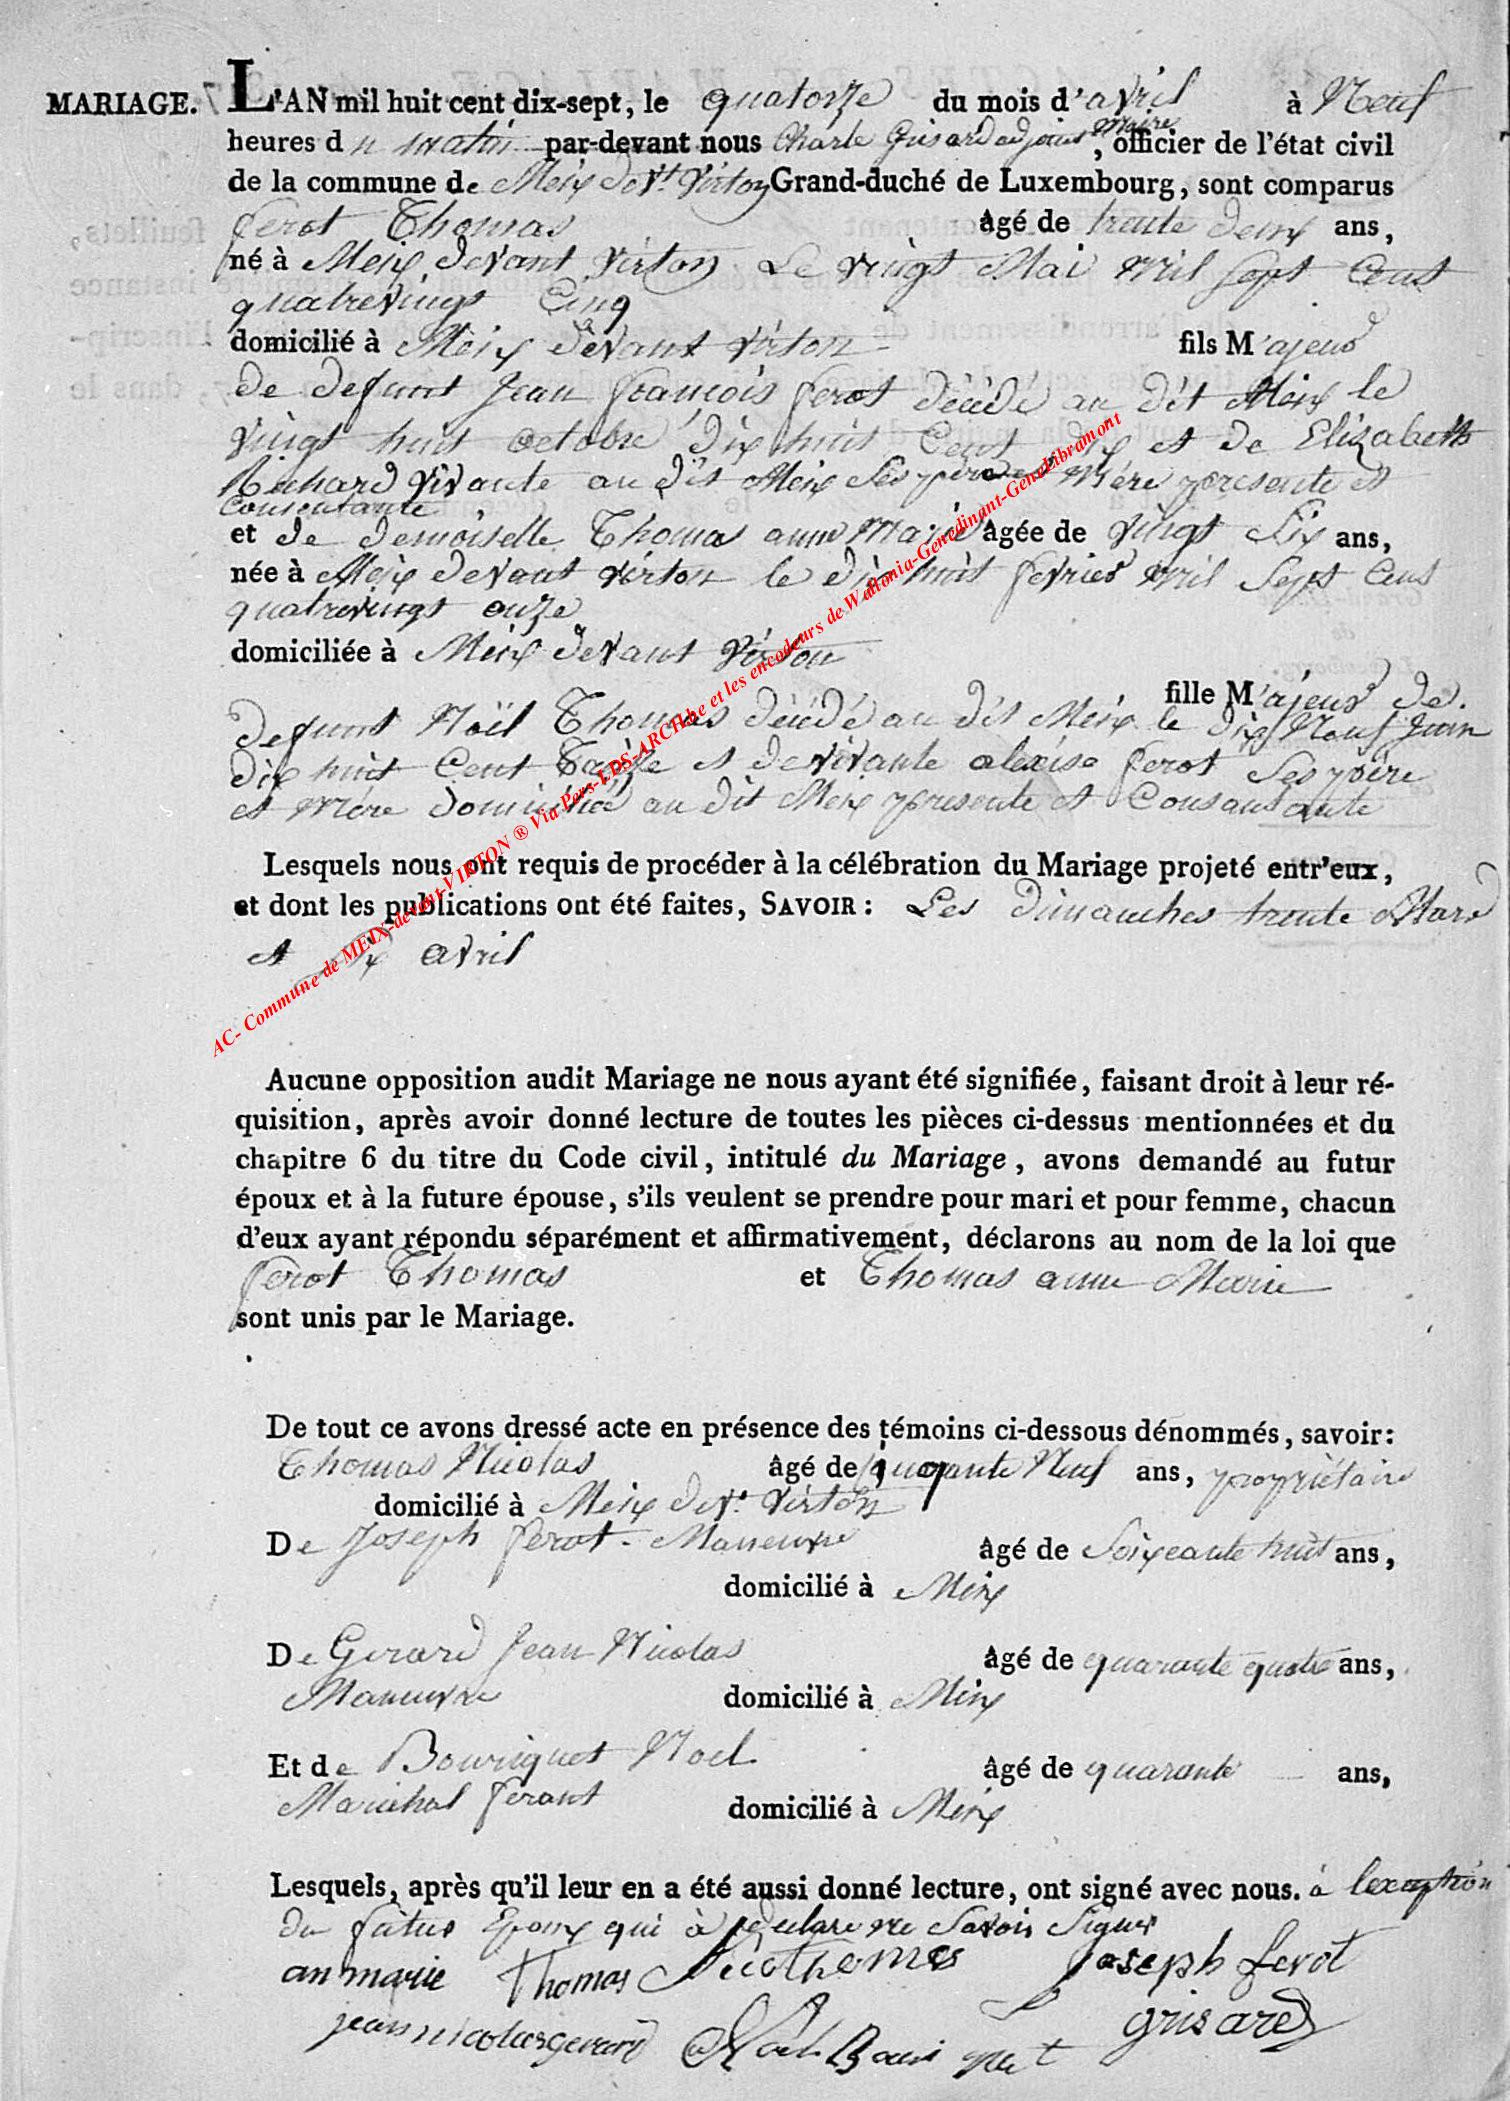 MARIAGE. L'AN mil huit cent dix-sept, le quatorze du mois d'avril à Neuf
heures du matin par-devant nous Charle Grisard adjoint Maire, officier de l'état civil
de la commune de Meix devt. Virton Grand-duché de Luxembourg, sont comparus
ferot Thomas âgé de trente deux ans,
né à Meix devant Virton Le vingt Mai mil sept Cent
quatrevingt Cinq
domicilié à Meix devant Virton fils M'ajeur
de defunt Jean françois ferot décédé au dit Meix le
vingt huit octobre dix huit Cent dix et de Elizabeth
Richard Vivante au dit Meix Ses père et Mère presente et
Consentante
et de demoiselle Thomas anne Marie âgée de vingt Six ans,
née à Meix devant Virton le dix huit fevrier mil Sept Cent
quatrevingt onze
domiciliée à Meix devant Virton
fille M'ajeur de
defunt Noël Thomas décédé au dit Meix le dix Neuf Juin
dix huit Cent Treize et de vivante alexise ferot Ses père
et mère domiciliée au dit Meix presente et Consantante
Lesquels nous ont requis de procéder à la célébration du Mariage projeté entr'eux,
et dont les publications ont été faites, SAVOIR : Les dimanches trente Mars
et Six avril
AC- Commune de MEIX-devant-VIRTON ® Via Pers-LDS-ARCH.be et les encodeurs de Wallonia-Genedinant-GeneLibramont
Aucune opposition audit Mariage ne nous ayant été signifiée, faisant droit à leur ré-
quisition, après avoir donné lecture de toutes les pièces ci-dessus mentionnées et du
chapitre 6 du titre du Code civil, intitulé du Mariage, avons demandé au futur
époux et à la future épouse, s'ils veulent se prendre pour mari et pour femme, chacun
d'eux ayant répondu séparément et affirmativement, déclarons au nom de la loi que
ferot Thomas et Thomas anne Marie
sont unis par le Mariage.
De tout ce avons dressé acte en présence des témoins ci-dessous dénommés, savoir:
Thomas Nicolas âgé de quarante Neuf ans, propriétaire
domicilié à Meix devt. Virton
De Joseph ferot Maneuvre âgé de Soixeante huit ans,
domicilié à Meix
De Gerard Jean Nicolas âgé de quarante quatre ans,
Maneuvre domicilié à Meix
Et de Bouriguet Noel âgé de quarante ans,
Marichal ferant domicilié à Meix
Lesquels, après qu'il leur en a été aussi donné lecture, ont signé avec nous. à lexeption
du futur Epoux qui à declare ne Savoir Signer
an marie Thomas Nicothomas Joseph ferot
jean nicolas gerard Noel Bouriguet grisard